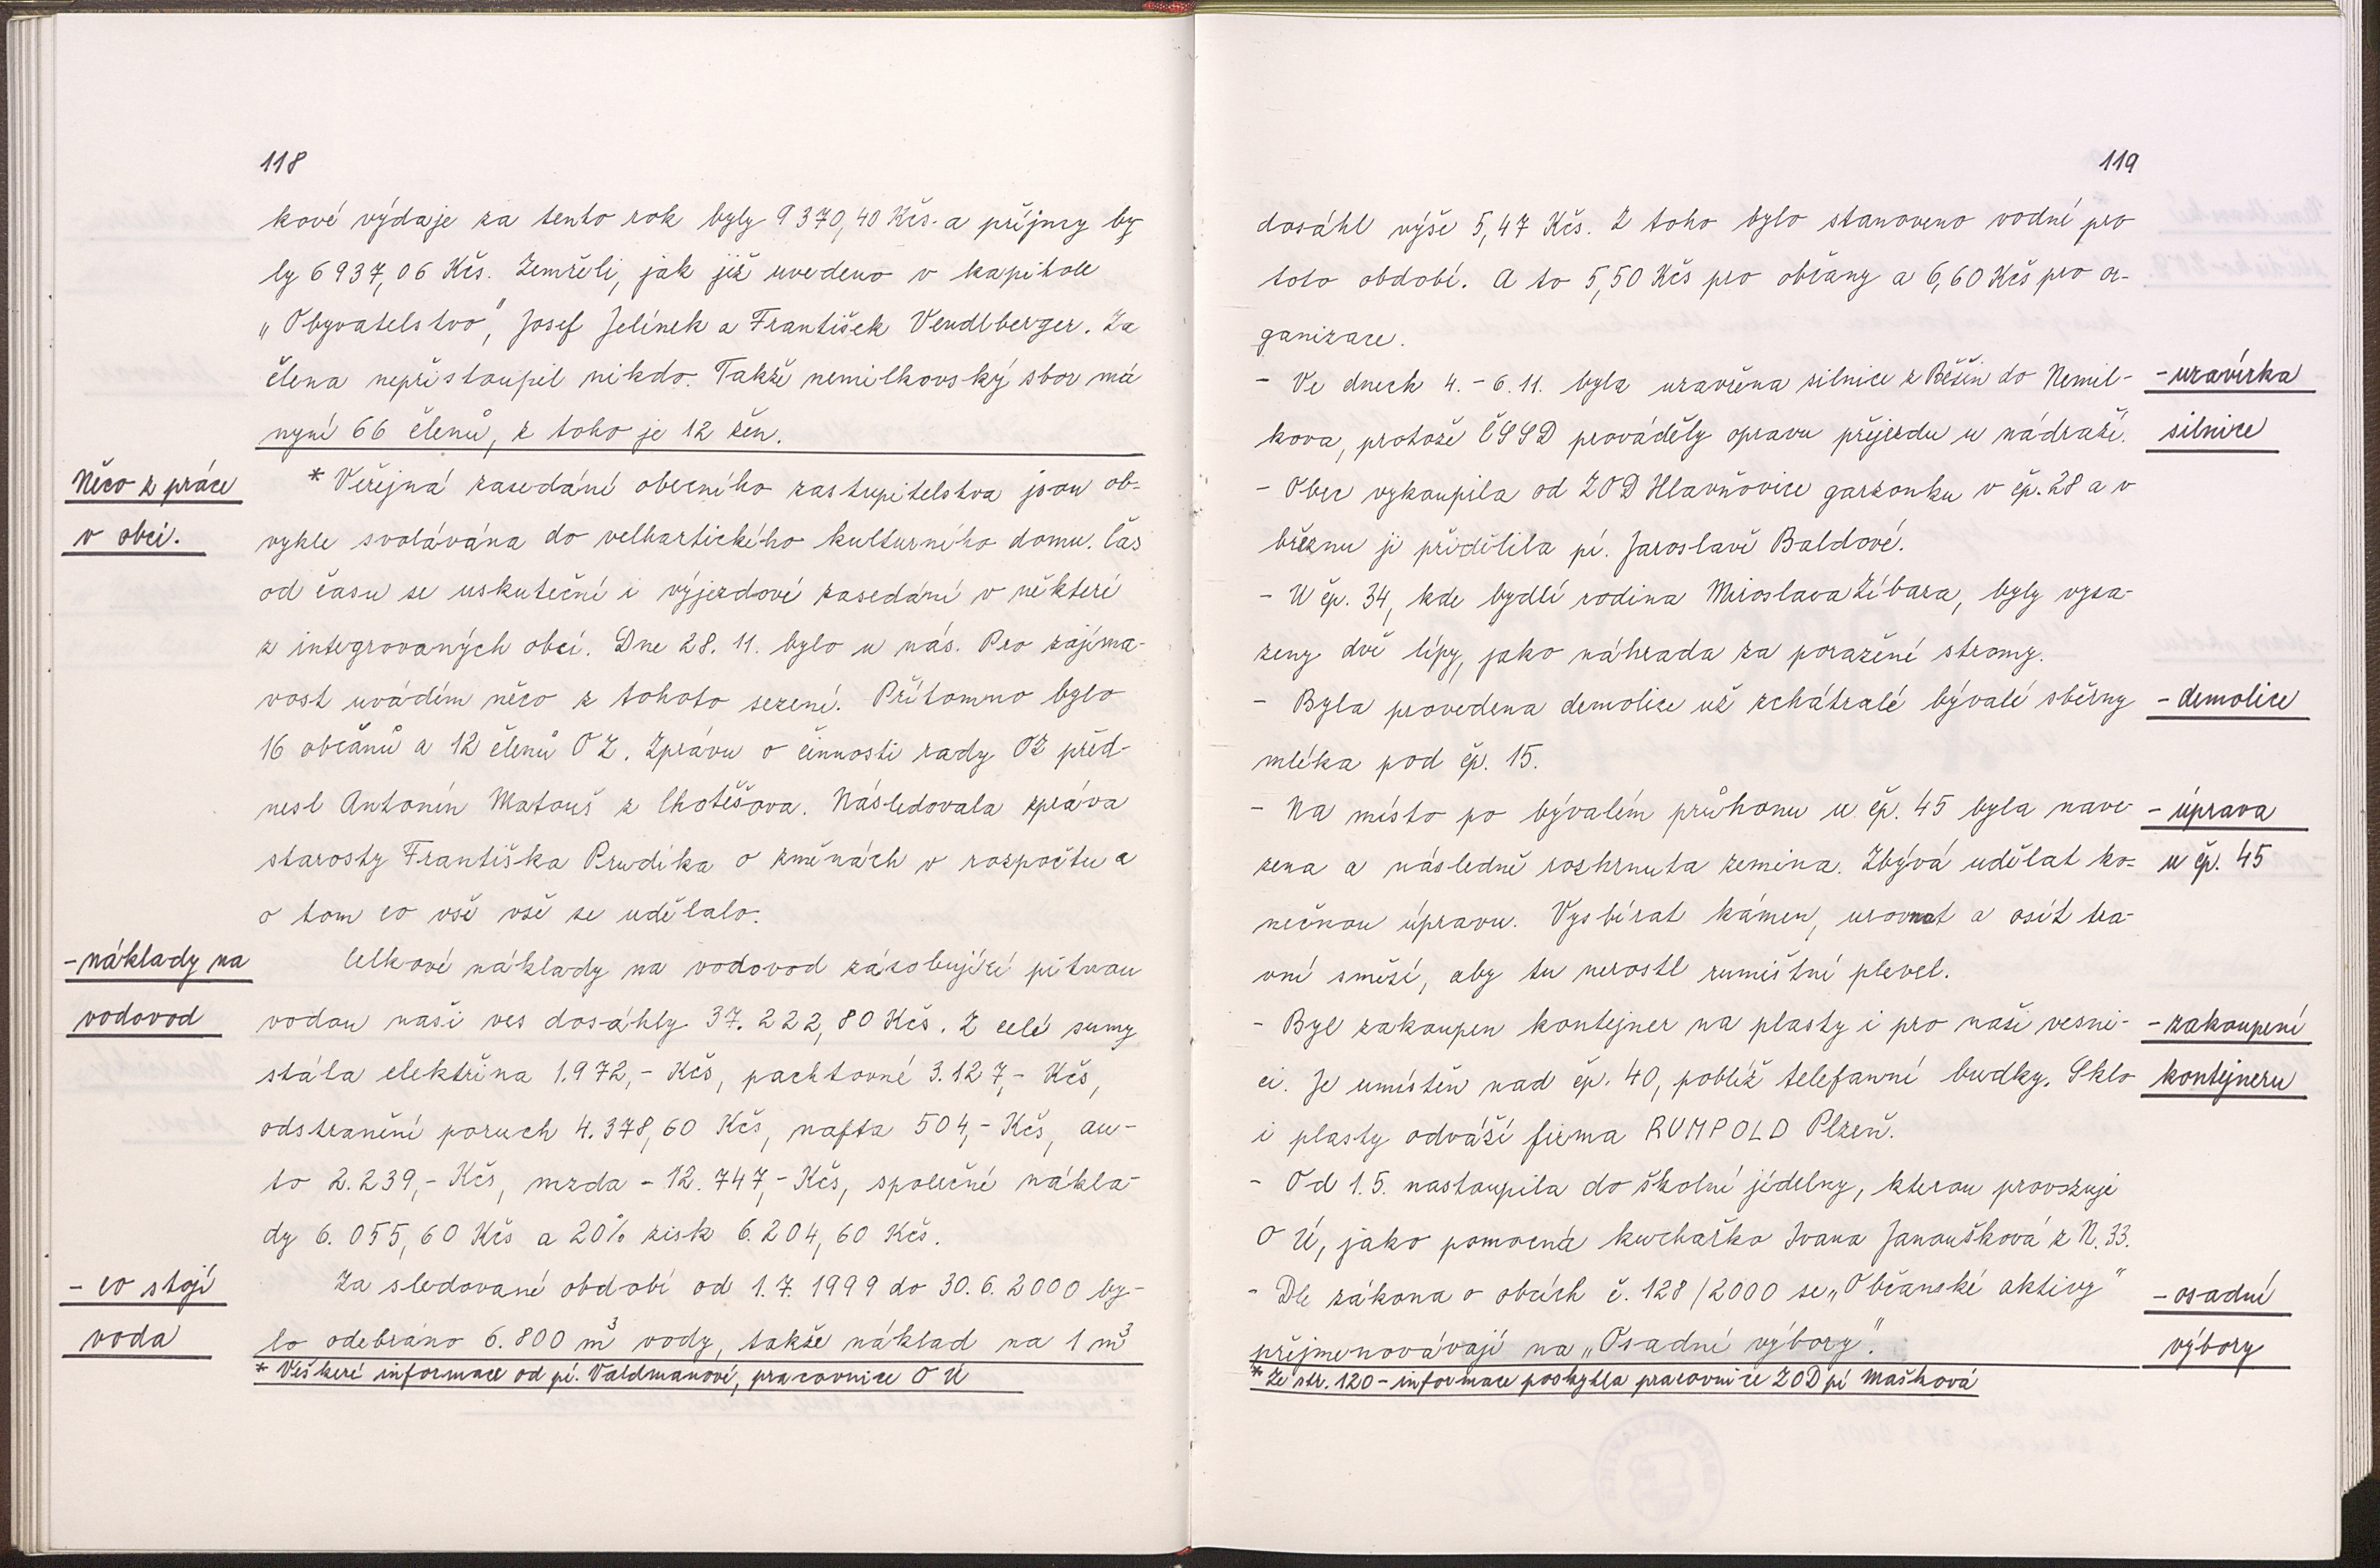 118
kové výdaje za tento rok byly 9 370,40 Kčs. a příjmy by
ly 6 937,06 Kčs. Zemřeli, jak již uvedeno v kapitole
„Obyvatelstvo”, Josef Jelínek a František Vendlberger. Za
člena nepřistoupil nikdo. Takže nemilkovský sbor má
nyní 66 členů, z toho je 12 žen.
Něco z práce
v obci.
* Veřejná zasedání obecního zastupitelstva jsou ob-
vykle svolávána do velhartického kulturního domu. Čas
od času se uskuteční i výjezdové zasedání v některé
z integrovaných obcí. Dne 28. 11. bylo u nás. Pro zajíma-
vost uvádím něco z tohoto sezení. Přítomno bylo
16 občanů a 12 členů OZ. Zprávu o činnosti rady OZ před-
nesl Antonín Matouš z Chotěšova. Následovala zpráva
starosty Františka Prudíka o změnách v rozpočtu a
o tom co vše vše se udělalo.
- náklady na
vodovod
Celkové náklady na vodovod zásobující pitnou
vodou naši ves dosáhly 37. 222,80 Kčs. Z celé sumy
stála elektřina 1.972,- Kčs, pachtovné 3.127,- Kčs,
odstranění poruch 4.378,60 Kčs, nafta 504,- Kčs, au-
to 2.239,- Kčs, mzda - 12.747,- Kčs, společné nákla-
dy 6.055,60 Kčs a 20% zisk 6.204,60 Kčs.
- co stojí
voda
Za sledované období od 1.7.1999 do 30.6.2000 by-
lo odebráno 6.800 m³ vody, takže náklad na 1 m³
* Veškeré informace od pí. Valdmanové, pracovnice O Ú
119
dosáhl výše 5,47 Kčs. Z toho bylo stanoveno vodné pro
toto období. A to 5,50 Kčs pro občany a 6,60 Kčs pro or-
ganizace.
- Ve dnech 4. - 6. 11. byla uzavřena silnice z Běšin do Nemil-
kova, protože ČSSD prováděly opravu přejezdu u nádraží.
- uzavírka
silnice
- Obec vykoupila od ZOD Hlavňovice garzonku v čp. 28 a v
březnu ji přidělila pí. Jaroslavě Baldové.
- U čp. 34, kde bydlí rodina Miroslava Zíbara, byly vysa-
zeny dvě lípy, jako náhrada za poražené stromy.
- Byla provedena demolice už zchátralé bývalé sběrny
mléka pod čp. 15.
- demolice
- Na místo po bývalém průhonu u čp. 45 byla nave-
zena a následně rozhrnuta zemina. Zbývá udělat ko-
nečnou úpravu. Vysbírat kámen, urovnat a osít tra-
vní směsí, aby tu nerostl rumištní plevel.
- úprava
u čp. 45
- Byl zakoupen kontejner na plasty i pro naši vesni-
ci. Je umístěn nad čp. 40, poblíž telefonní budky. Sklo
i plasty odváží firma RUMPOLD Plzeň.
- zakoupení
kontejneru
- Od 1.5. nastoupila do školní jídelny, kterou provozuje
O Ú, jako pomocná kuchařka Ivana Janoušková z N. 33.
- Dle zákona o obcích č. 128/2000 se „Občanské aktivy”
přejmenovávají na „Osadní výbory”.
- osadní
výbory
* Ze str. 120 - informace poskytla pracovnice ZOD pí Mašková